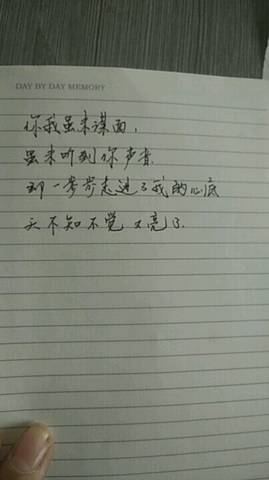 DAY BY DAY MEMORY
你我虽未谋面,
虽未听到你声音.
却一步步走进了我的心底
天不知不觉又亮了.